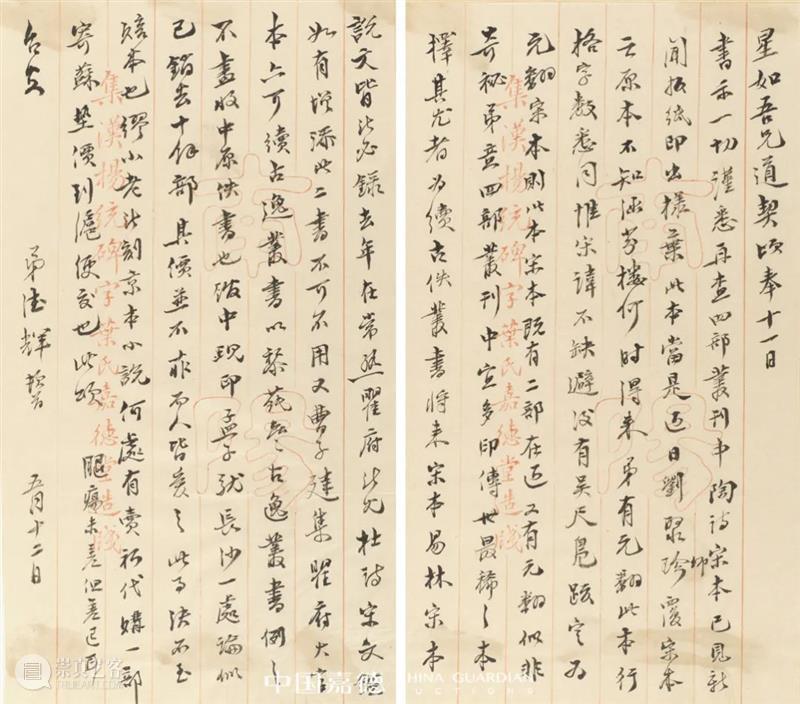 星如吾兄道契頃奉十一日
書示一切謹悉再查四部叢刊中陶詩宋本已見新
聞報紙印出樣葉此本當是近日劉聚卿覆宋本
云原本不知涵芬樓何時得來弟有元翻此本行
格字數悉同惟宋諱不缺避後有吳尺鳧跋定為
元翻宋本則此本宋本既有二部在近又有元翻似非
奇秘弟意四部叢刊中宜多印傳世最稀之本
擇其尤者為續古佚叢書將來宋本易林宋本
說文皆須必錄去年在常熟瞿府見杜詩宋文鑑
如有增添此二書不可不用又曹子建集瞿府大字
本亦可續古逸叢書以黎蒓齋古逸叢書例之
不盡收中原佚書也館中現印孟子就長沙一處論似
已銷去十餘部其價並不菲而人皆爰之此事決不至
賠本也繆小老所刻京本小說何處有賣祈代購一部
寄蘇墊價到滬便交也此頌
腿瘍未差但差已耳
台安
弟德輝頓首
五月十二日
集漢楊統碑字葉氏嘉德堂造牋
集漢楊統碑字葉氏嘉德堂造牋
崇真艺客
中国嘉德
CHINA GUARDIAN AUCTIONS